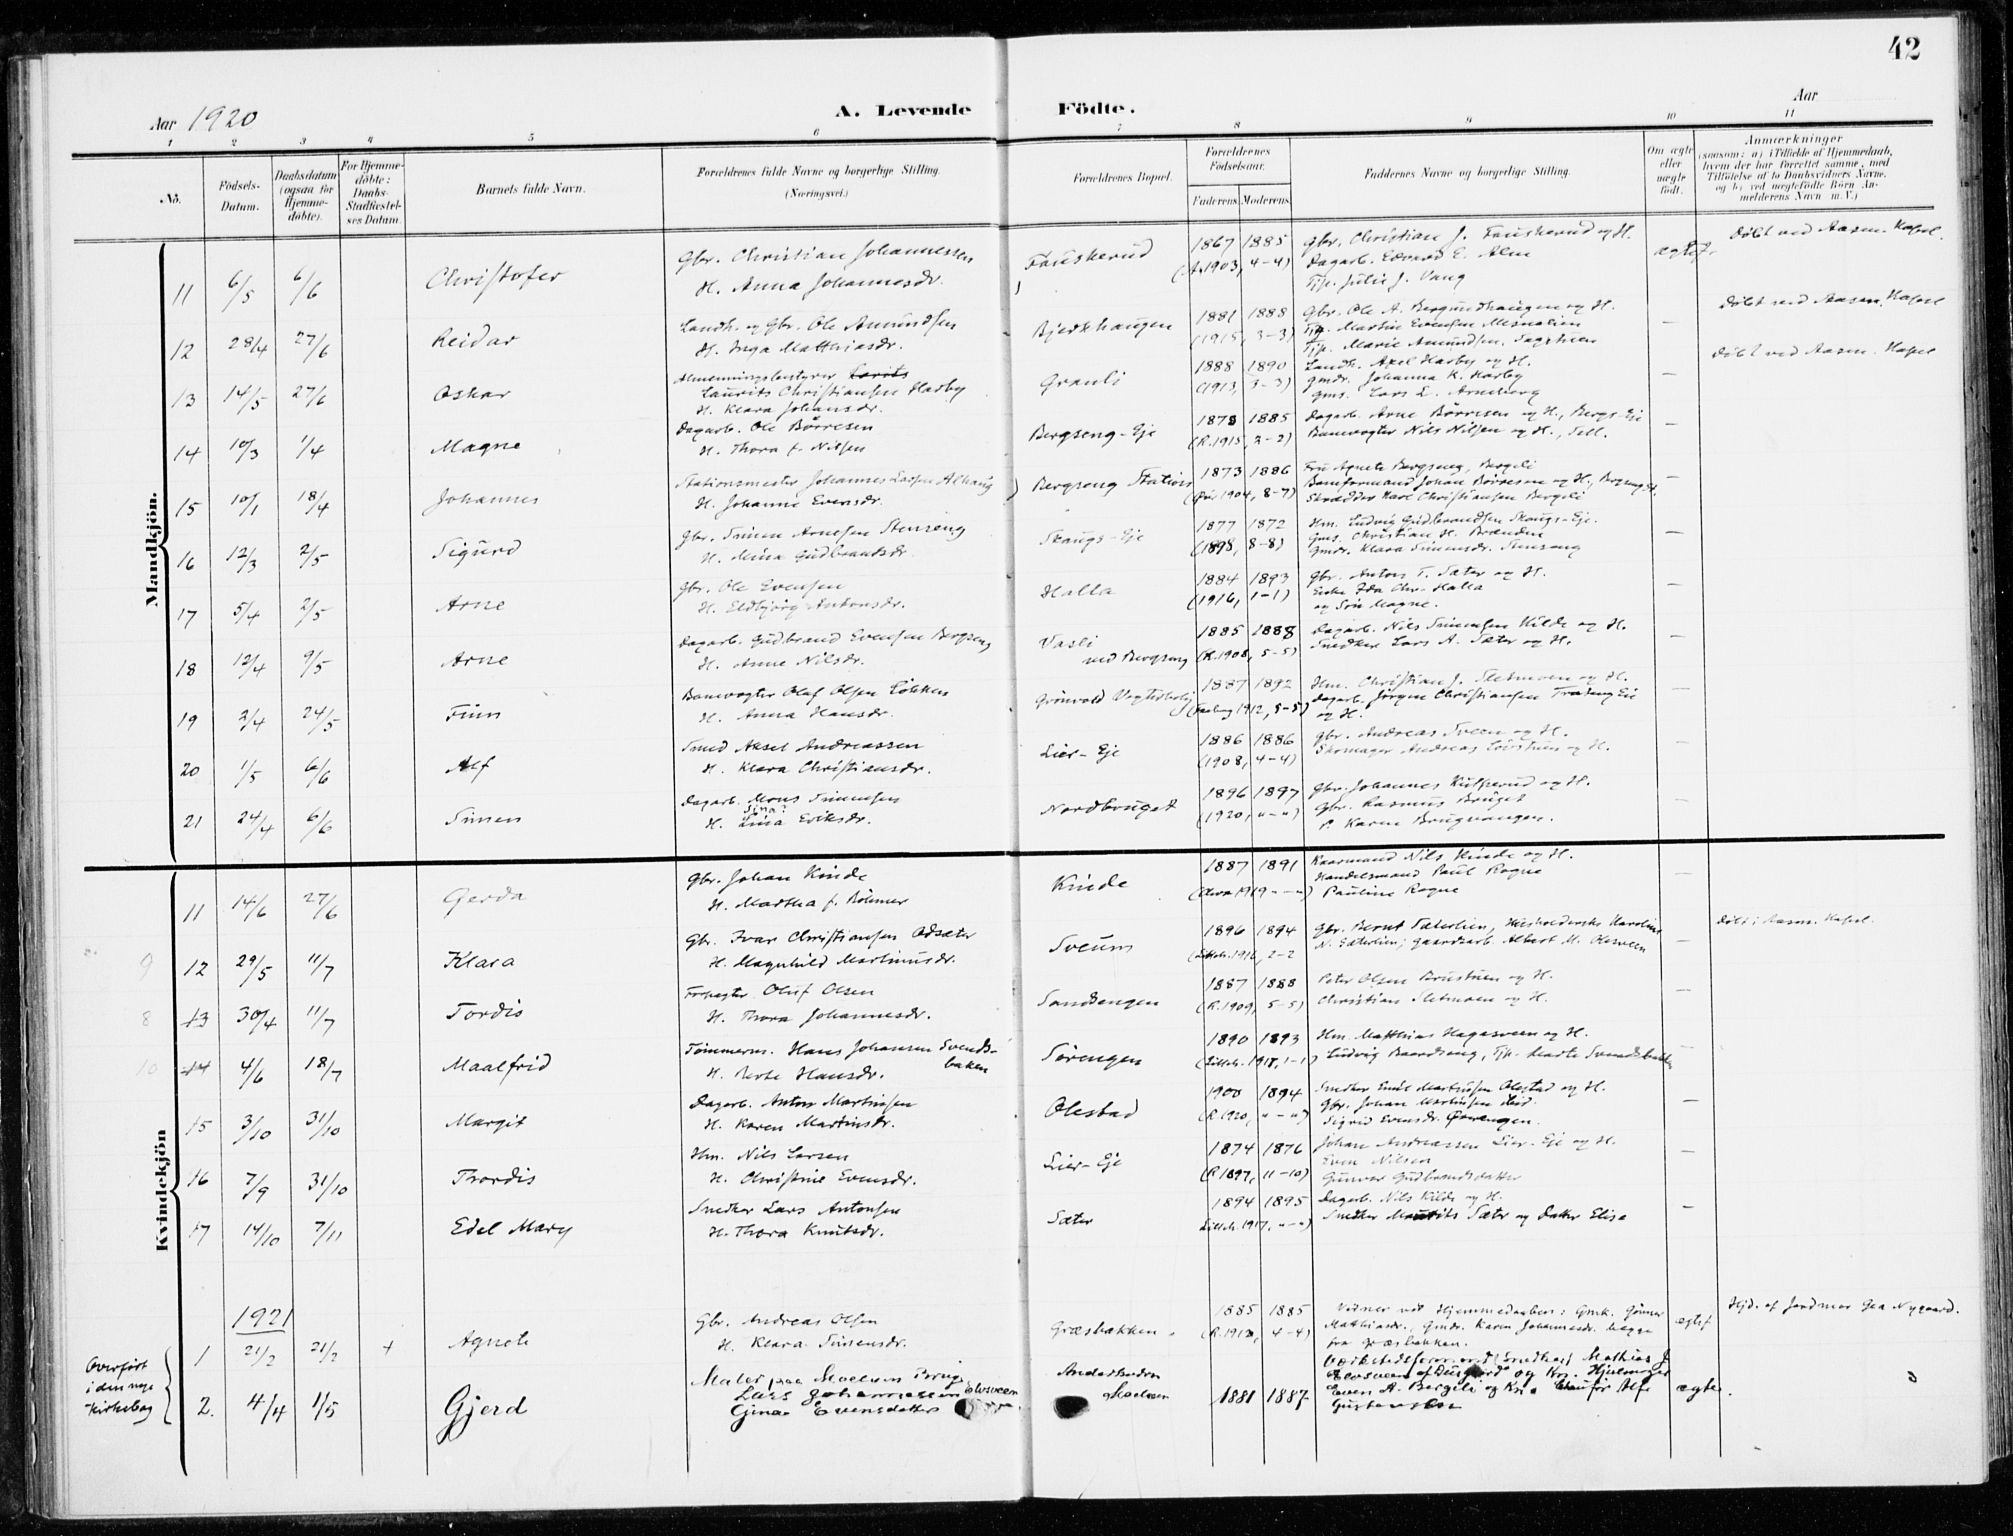 42
Aar 1920
A. Levende Födte.
Aar
1 2 3 4 5 6 7 8 9 10 11
No.
Födsels-Datum.
Daabsdatum (ogsaa for Hjemme-döbte).
For Hjemme-döbte: Daabs-Stadfæstel-ses Datum.
Barnets fulde Navn.
Forældrenes fulde Navne og borgerlige Stilling. (Næringsvei.)
Forældrenes Bopæl.
Forældrenes Födselsaar.
Faderens. Moderens.
Faddernes Navne og borgerlige Stilling.
Om ægte eller uægte födt.
Anmærkninger
(saasom: a) i Tilfælde af Hjemmedaab, hvem der har forrettet samme, med Tilföielse af to Daabsvidners Navne, og b) ved uægtefödte Börn An-melderens Navn m.V.)
Mandkjön.
11 6/5 6/6 Christofer
Gbr. Christian Johannessen
H. Anna Johannesdr.
Fauskerud
1867 1885
(A. 1903, 4-4)
Gbr. Christian J. Fauskerud og H.
Dagarb. Edvard E. Alm
Tjp. Julie J. Vang
ægtef.
Döbt ved Aasm. Kapel.
12 28/4 27/6 Reidar
Landh. og Gbr. Ole Amundsen
H. Inga Matthiasdr.
Bjerkhaugen
1881 1888
(1915, 3-3)
Gbr. Ole A. Bergundhaugen og H.
Tjp. Martin Evensen Mesnalien
Tjp. Marie Amundsen
—
Döbt ved Aasm. Kapel
13 14/5 27/6 Oskar
Almenningsbestyrer
Laurits Christiansen Harby
H. Klara Johansdr.
Granli
1888 1890
(1913, 3-3)
Landh. Axel Harby og H.
Gmdr. Johanna K. Harby
Gms. Lars L. Arneberg
—
Döbt ved Aasm. Kapel
14 10/3 1/4 Magne
Dagarb. Ole Börresen
H. Thora f. Nilsen
Bergseng-Eje
1878 1885
(R. 1915, 2-2)
Dagarb. Arne Börresen og H., Bergs-Eje
Banevogter Nils Nilsen og H., Tell.
—
15 10/1 18/4 Johannes
Stationsmester Johannes Larsen Alhaug
H. Johanne Evensdr.
Bergseng Station
1873 1886
1904, 8-7)
Fru Agnete Bergseng, Bergeli
Baneformand Johan Börresen og H.
Skrædder Karl Christiansen Bergeli
—
16 12/3 2/5 Sigurd
Gbr. Simen Arnesen Stenseng
H. Mina Gudbrandsdr.
Skaugs-Eje
1877 1872
(1898, 8-8)
Hm. Ludvig Gudbrandsen Skaugs-Eje.
Gms. Christian H. Brænden
Gmdr. Klara Simensdr. Stenseng
—
17 5/4 2/5 Arne
Gbr. Ole Evensen
H. Eldbjörg Antonsdr.
Halla
1884 1893
(1916, 1-1)
Gbr. Anton T. Sæter og H.
Enke Ida Chr. Halla
og Sön Magne.
—
18 12/4 9/5 Arne
Dagarb. Gudbrand Evensen Bergseng
H. Anne Nilsdr.
Vasli
ved Bergseng
1885 1888
(R. 1908, 5-5)
Dagarb. Nils Simensen Kilde og H.
Snedker Lars A. Sæter og H.
—
19 2/4 24/5 Finn
Banevogter Olaf Olsen Lökken
H. Anna Hansdr.
Grönvold Vogterbolig
1887 1892
1912, 5-5)
Hm. Christian J. Sletmoen og H.
Dagarb. Jörgen Christiansen
og H.
—
20 1/5 6/6 Alf
Smed Aksel Andreassen
H. Klara Christiansdr.
Lier-Eje
1886 1886
(1908, 4-4)
Gbr. Andreas Sveen og H.
Skomager Andreas Löistuen og H.
—
21 24/4 6/6 Simen
Dagarb. Mons Simensen
H. Lina Eriksdr.
Nordbruget
1896 1897
(1920, „-„)
Gbr. Johannes Kulsrerud og H.
Gbr. Rasmus Bruget
P. Karen Brugvangen.
—
Kvindekjön
11 14/6 27/6 Gerda
Gbr. Johan Kinde
H. Martha f. Böhmer
Kinde
1887 1891
1919 „-„)
Kaarmand Nils Kinde og H.
Handelsmand Paul Rogne
Pauline Rogne
—
9 12 29/5 11/7 Klara
Gbr. Ivar Christiansen Odsæter
H. Magnhild Martinusdr.
Sveum
1896 1894
(Lilleh. 1916, 2-2
Gbr. Bernt Sæterlien, Husholderske Karoline
N. Sæterlien; Gaardsarb. Albert M. Olesveen
—
Döbt i Aasm. Kapel.
8 13 30/4 11/7 Tordis
Forpagter Oluf Olsen
H. Thora Johannesdr.
Sandvengen
1887 1888
(R. 1909, 5-5)
Peter Olsen Brustuen og H.
Christian Sletmoen og H.
—
10 14 4/6 18/7 Maalfrid
Tömmerm. Hans Johansen Svends-
baken
H. Berte Hansdr.
Sörengen
1890 1893
(Lilleh. 1918, 1-1)
Hm. Matthias Hagesveen og H.
Ludvig Baardseng, Tjp. Marte Svendsbakken
—
15 3/10 31/10 Margit
Dagarb. Anton Martinsen
H. Karen Martinsdr.
Olestad
1900 1894
(R. 1920, „-„)
Snedker Emil Martinsen Olestad og H.
Gbr. Johan Martinsen ibid.
Sigrid Evensdr.
—
16 7/9 31/10 Thordis
Hm. Nils Larsen
H. Christine Evensdr.
Lier-Eje
1874 1876
(R. 1897, 11-10)
Johan Andreassen Lier-Eje og H.
Even Nilsen
Gunvor Gudbrandsdatter
—
17 14/10 7/11 Edel Mary
Snedker Lars Antonsen
H. Thora Knutsdr.
Sæter
1894 1895
Lilleh. 1917, „-„)
Dagarb. Nils Kilde og H.
Snedker Maurits Sæter og Datter Elise
—
1921
1 21/2 21/2 + Agnete
Gbr. Andreas Olsen
H. Klara Simensdr.
Græsbakken
1885 1885
(R. 1912, 4-4)
Vidner ved Hjemmedaaben: Gmk. Gunnar
Mathiasdr., Gmdr. Karen Johannesdr. begge
fra Græsbakken.
ægtef
Hjd. af Jordmor Gea Nygaard.
Overfört
i den nye
kirkebog
2. 4/4 1/5 Gjerd
Maler paa Moelven Brug
Lars Johannessen Elvsveen
Gjina Evensdatter
Anderstuen
Moelven
1881 1887
Værkstedsformand (Snedker) Mathias J.
Elvsveen af Ringsaker og Kn. Hjulmager
Even A. Bergeli og Kn. Chaufför Alf
Gustavsen
ægte.